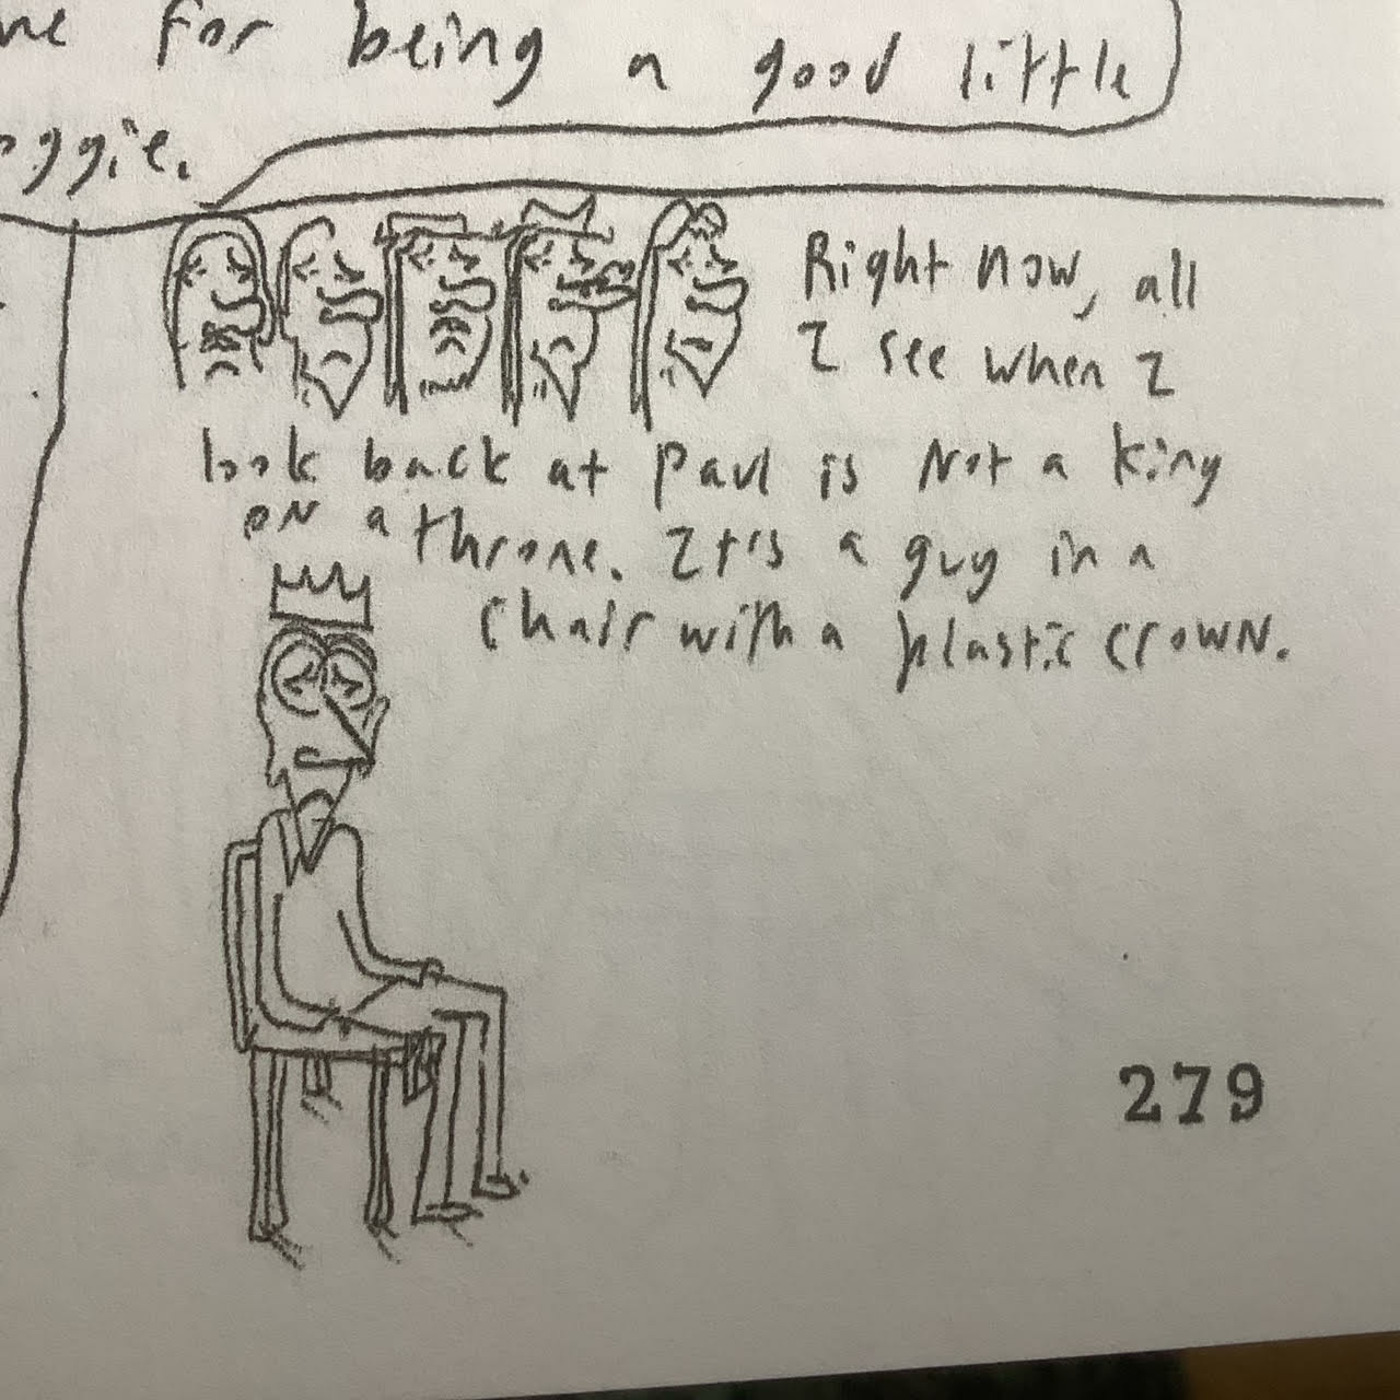 for being a good little
Right now, all
I see when I
look back at Paul is Not a king
on a throne. It's a guy in a
chair with a plastic crown.
279